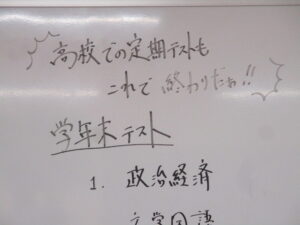 高校での定期テストも
これで終わりだぁ!!
学年末テスト
1. 政治経済
文学国語